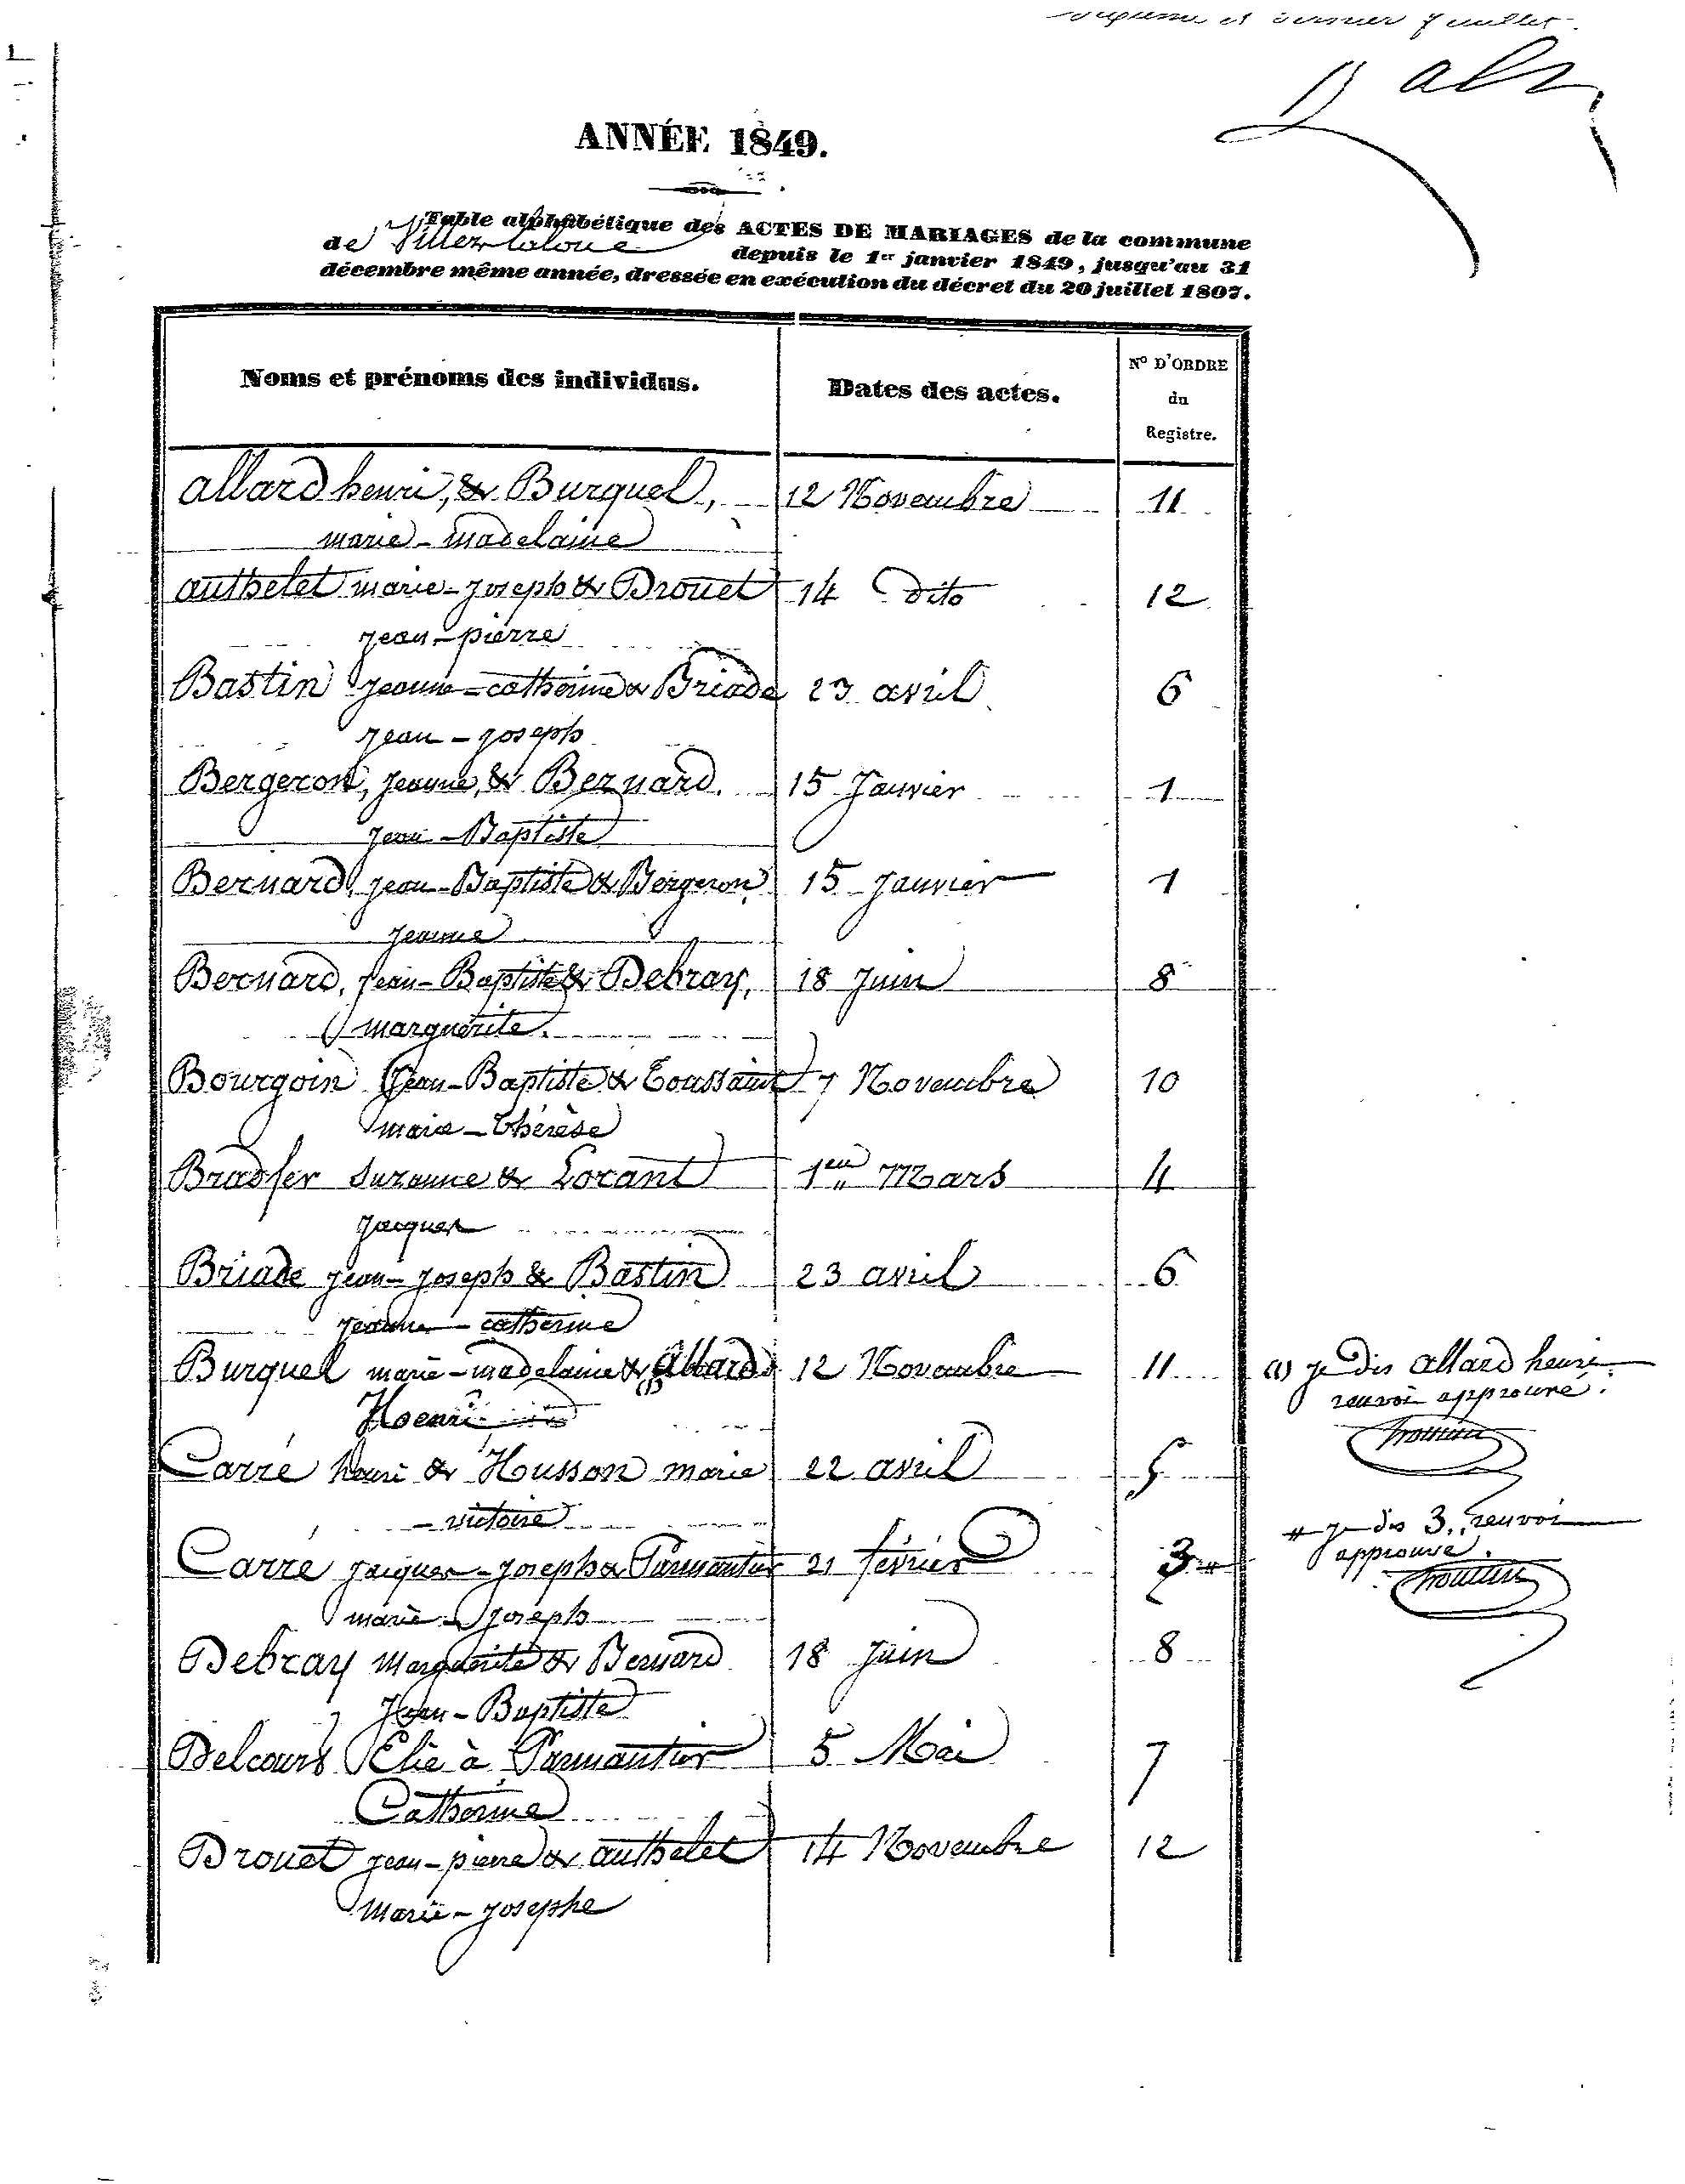 et dernier feuillet.
ANNÉE 1849.
Table alphabétique des ACTES DE MARIAGES de la commune
de Villers la loue depuis le 1er janvier 1849, jusqu'au 31
décembre même année, dressée en exécution du décret du 20 juillet 1807.
Noms et prénoms des individus. Dates des actes. No D'ORDRE
du
Registre.
allard henri, & Burquel, 12 Novembre 11
marie-madelaine
authelet marie-joseph & Drouet 14 Dito 12
jean-pierre
Bastin jeanne-catherine & Briade 23 avril 6
jean-joseph
Bergeron, jeanne, & Bernard. 15 Janvier 1
jean-Baptiste
Bernard, jean-Baptiste & Bergeron, 15 Janvier 1
jeanne
Bernard, jean-Baptiste & Debray, 18 Juin 8
marguerite.
Bourgoin Jean-Baptiste & Toussaint 7 Novembre 10
marie-thérèse
Bradfer Suzanne & Lorant 1er Mars 4
jacques
Briade jean-joseph & Bastin 23 avril 6
jeanne-catherine
Burquel marie-madelaine & allard 12 Novembre 11 (1) je dis allard henri
(1) renvoi approuvé.
Carré henri & Husson marie 22 avril 5
-victoire
# je dis 3, renvoi
approuvé.
Carré jacques-joseph & Parmantier 21 février 3 #
marie-joseph
Debray marguerite & Bernard 18 Juin 8
Jean-Baptiste
Delcourt Elie à Parmantier 5 Mai 7
Catherine
Drouet jean-pierre & authelet 14 Novembre 12
marie-josephe